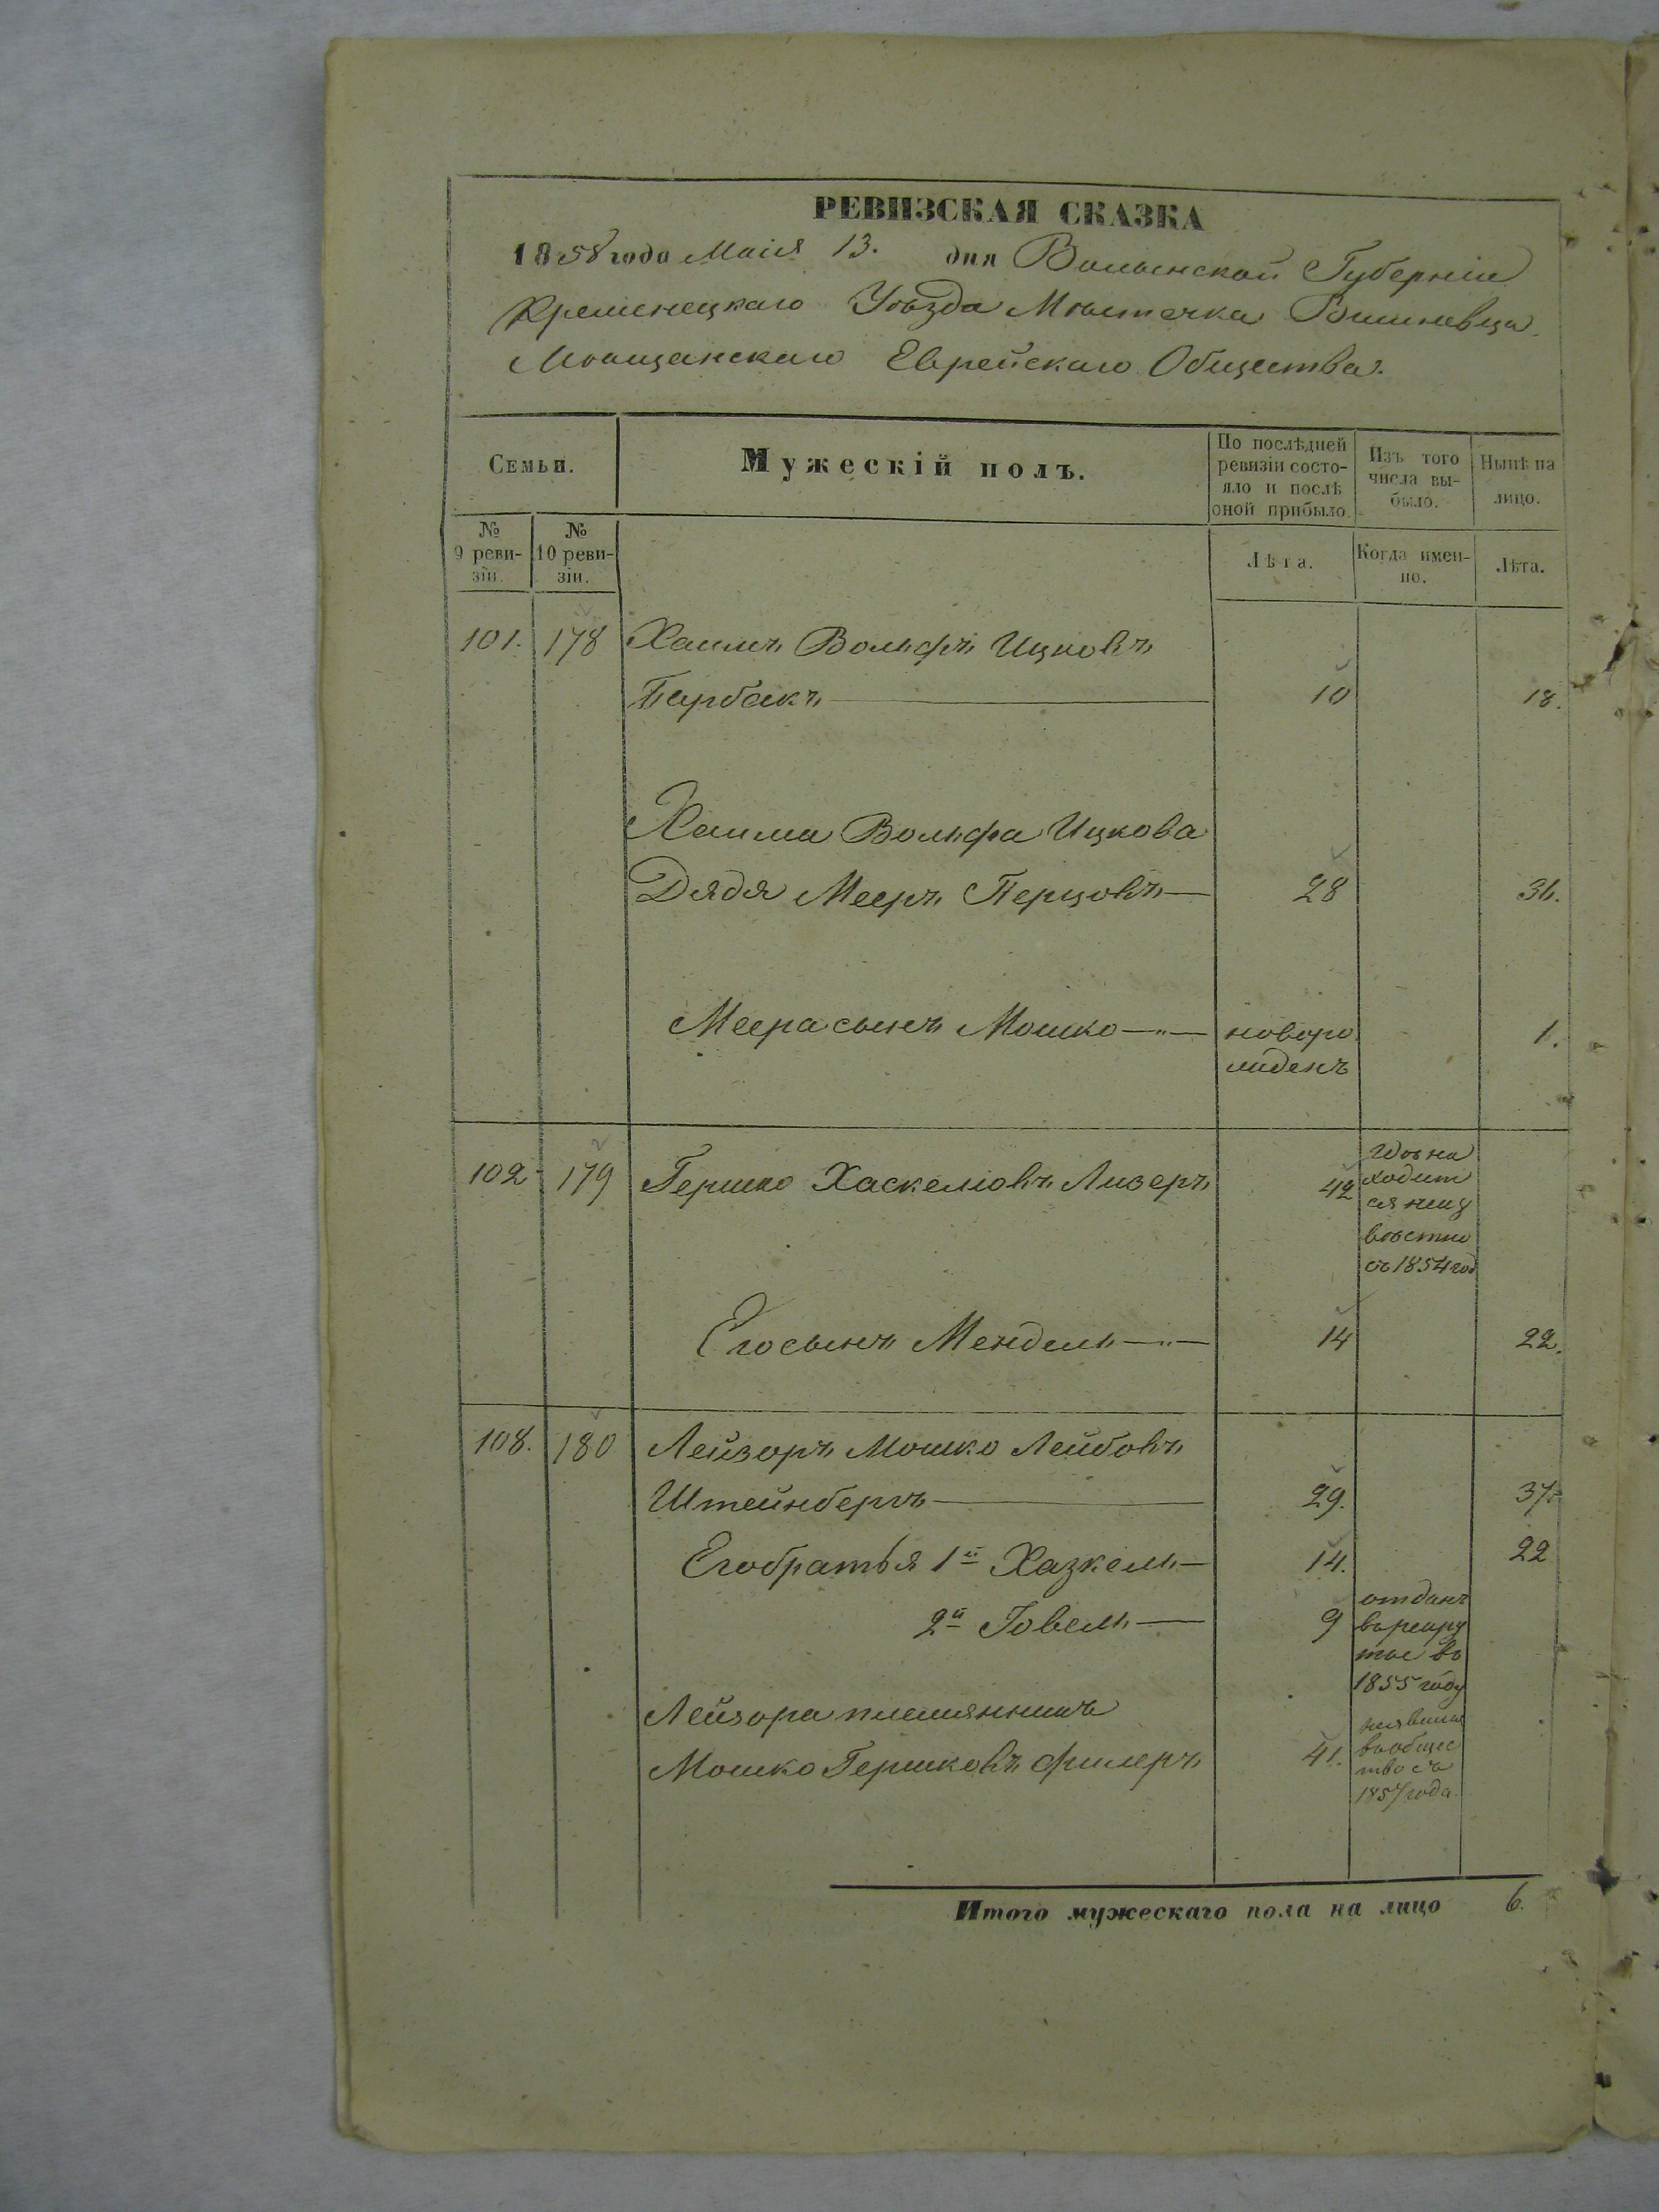 РЕВИЗСКАЯ СКАЗКА
1858 года Маія 13. дня Волынской Губерніи
Кременецкаго Уѣзда Мѣстечка Вишневца
Мѣщанскаго Еврейскаго Общества.
Семьи.
Мужескій полъ.
По послѣдней ревизіи состо-яло и послѣ оной прибыло.
Изъ того числа вы-было.
Нынѣ на лицо.
№ 9 реви-зіи.
№ 10 реви-зіи.
Лѣта.
Когда имен-но.
Лѣта.
101. 178 Хаимъ Вольфъ Ицковъ
Барбакъ 10 18.
Хаима Вольфа Ицкова
Дядя Мееръ Перцовъ 28 36.
Меера сынъ Мошко новоро 1.
жденъ
102 179 Гершко Хаскеліовъ Лизеръ 42
гдѣ на
ходит
ся неиз
вѣстно
съ 1854 год
Его сынъ Мендель 14 22.
108. 180 Лейзоръ Мошко Лейбовъ
Штейнбергъ 29. 37.
Его братья 1й Хазкель 14. 22
2й Іовель 9
отданъ
въ рекру
ты въ
1855 году
Лейзора племянникъ
Мошко Гершковъ Филеръ 41.
неявился
въ общес
тво съ
1857 года.
Итого мужескаго пола на лицо 6.